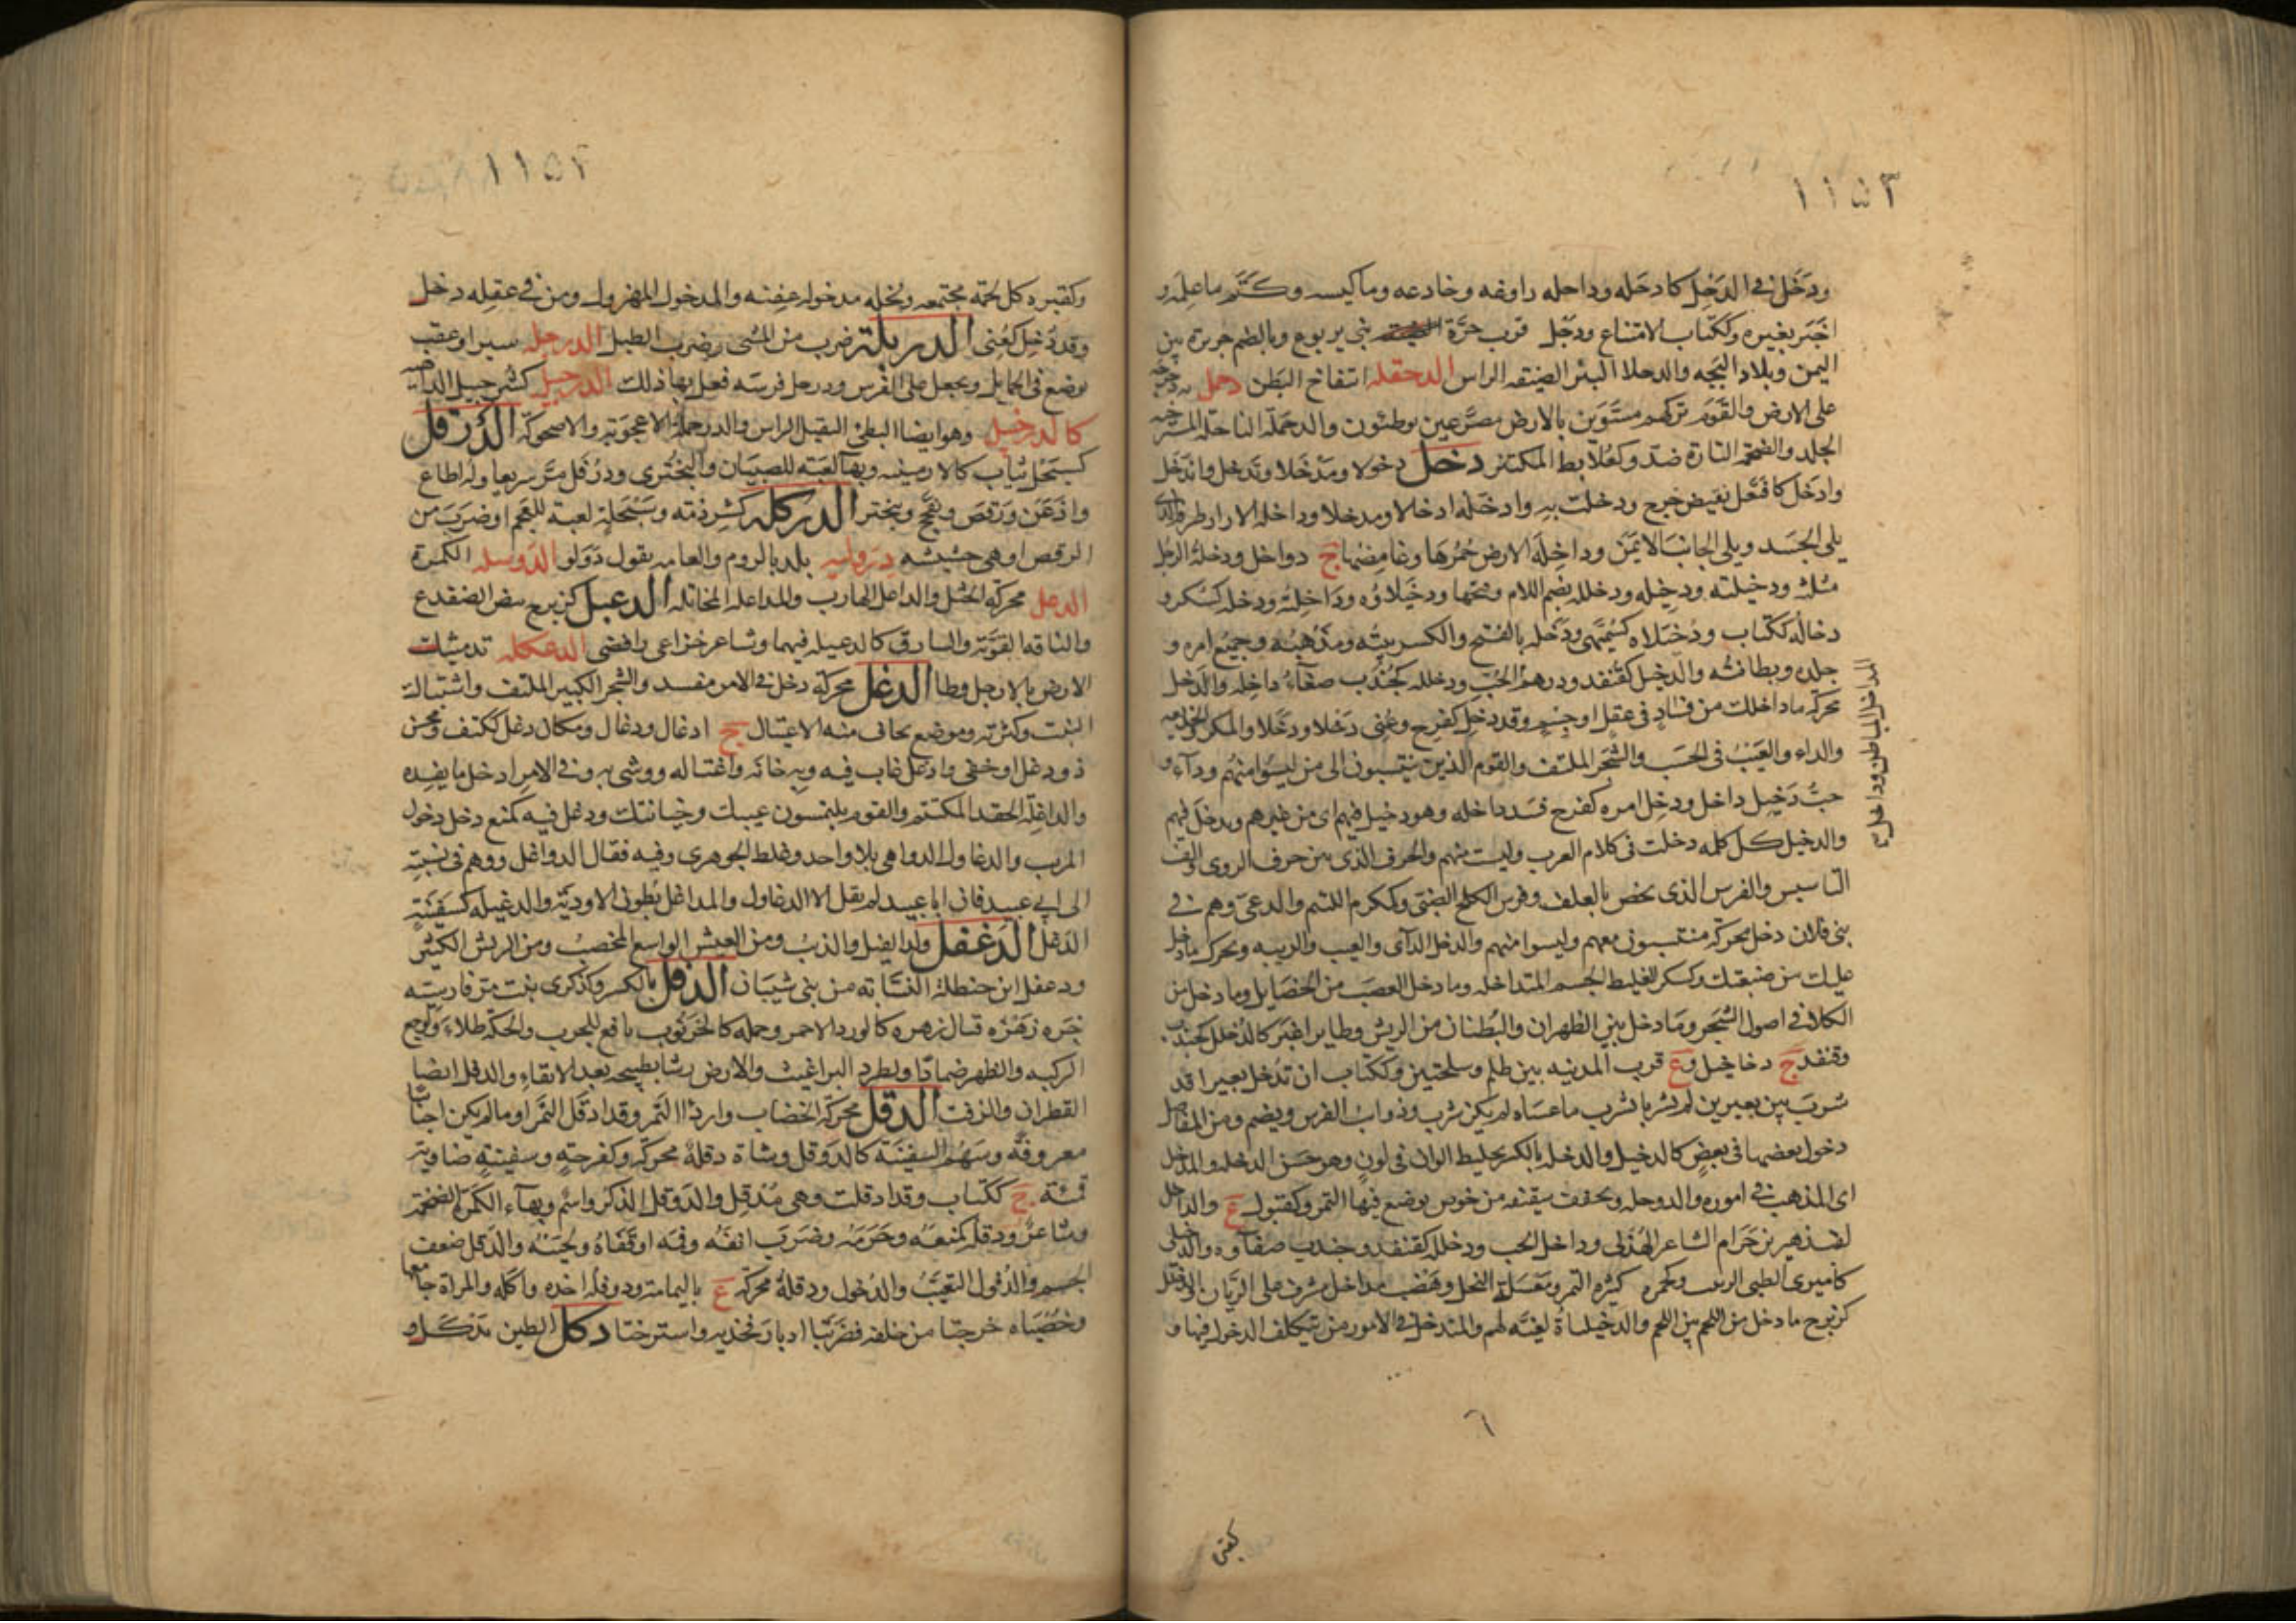 ١١٥٣
ودَخَل في الدَخِل كادحَله وداحله راوغه وخادعه وماكيسه وكتَم ماعلِمَه و
اخبَر بغيره وككتاب الامتناع ودحَل قرب حزَّة بني يربوع وبالضم جزيرة بين
اليمن وبلاد البجه والدحلا البئر الضيقه الراس الدحقله انتفاخ البَطن دحمل به دحرجه
على الارض والقَوم تركهم مستَوَين بالارض مصَرَّعين يوطئون والدحمَلة الناحلة المسترخيه
الجلد والضخمَة التارة ضدّ وكعُلابط المكتنز دخل دخولا ومَدْخَلا وتَدخل واندَخَل
وادخَل كافتَعل نقيض خرج ودخلت به وادخَلته ادخالا ومدخلا وداخلة الازار طرفه الذى
يلى الجسَد ويلى الجانبَ الايمَن وداخِلة الارض خَمَرُها وغامِضُها ج دواخل ودخلةُ الرجل
مثلثه ودخيلته ودخيله ودخلله بضم اللام وفتحها ودخَيلاؤه وداخلِته ودخله كسُكر و
دخاله ككتاب ودُخيَلاه كسُمَّيهى ودَخله بالفتح والكسر نيتُه ومَذهبُه وجميع امره و
جلده وبطانتُه والدخيل كقنفد ودرهم الحُبّ ودخلله كجُندُب صفآءُ داخِله والدَخل
محركه ماداخلك من فسَادٍ في عقل اوجِسْم وقد دخِل كفرِح وعُني دَخلا ودَخَلا والمكر والخديعه
والداء والعَيْبُ في الحسَب والشجَر الملتف والقوم الذين ينتسبون الى من ليسُوا منهم ودآء و
حبُّ دَخيل داخل ودخِل امره كفرح فسَد داخله وهو دخيل فيهم اى من غيرهم ويدخل فيهم
والدخيل كل كلمه دخلت في كلام العرب وليست منهم والحرف الذى بين حرف الروى والف
التأسيس والفرس الذى يخص بالعلف وفرس الكلح الضبّى وكمكرم اللئيم والدعىّ وهم في
بنى فلان دخل محركة منتسبون معهم وليسوا منهم والدخل الدآى والعيب والريبه ويحرك ومادخل
عليك من ضيعتك وكسكر الغليظ الجسم المتداخله ومادخل العصَب من الخصَايل ومادخل من
الكلا في اصول الشجَر ومَادخل بين الظهران والبُطنان من الريش وطاير اغبَر كالدُخلل كجندب
وقنفد ج دخاخيل وع قرب المدنيه بين ظلم وملحتين وككتاب ان تُدخل بعيرا قد
شربَ بين بعيرين لم يشربا ليشرب ماعسَاه لم يكن شرب وذوائب الفرس ويضم ومن المفاصل
دخول بعضها في بعضٍ كالدخيل والدخله بالكسر تخليط الوان في لونٍ وهو حسَن الدخله والمدخل
اى المذهب في اموره والدوخله وتخفف سقيفه من خوص يوضع فيها التمر وكقبول ع والداخل
لقب زهير بن حَرام الشاعر الهُذَلي وداخل الحب ودخلله كقنفد وجندب صفآوه والدخلى
كاميرى الظبى الربيب وكحمره كثيره التمر ومعسَلة النحل وهَضْب مداخل مشرف على الرَيان والدخلل
كزبرج مادخل من اللحم بين اللحم والدخيلياة لعبَه لهم والمتدخل في الامور من يتكلف الدخول فيها و
المداخل الباطن وداخل ع
٦
كقبر
١١٥٤
وكقبره كل لحمَة مجتمعه ونخله مدخوله عفِنه والمدخول المهزول ومن في عقلِه دخل
وقد دُخِل كعُنِى الدربلة ضرب من المشى وضرب الطبل الدرجلة سير او عقب
يوضع في الحمايل ويجعل على القوس ودرجل قوسه فعل بها ذلك الدرخبيل كشرحبيل الداهيه
كالدرخميل وهو ايضا البطئ الثقيل الراس والدرخملة الاعجوبة والاضحوكة الدِرَقل
كسِبَحْل ثياب كالارمينيه وبهآ لعبَة للصبيَان والبخترى ودرْقَل مَرَّ سريعا وله اطاع
واذعَن ورَقصَ وتفحَّج وتبختر الدركلة كشرذمة وسِبَحلة لعبة للعجم او ضربَ من
الرقص او هى حبشيه دِرَولية بلد بالروم والعامه يقول دَوَلو الدَوسله الكمرة
الدعل محركة الختْل والداعل الهارب والمداعله المخاتله الدعبل كزبرج بيض الضفدع
والناقه القويَّة والشارف كالدعبله فيهما وشاعر خزاعى رافضى الدعكله تدميثك
الارض بالارجل وطا الدغل محركة دخل في الامر مفسد والشجر الكثير الملتف واشتباك
النبت وكثرته وموضع يخاف منه الاغتيال ج ادغال ودغال ومكان دغل ككتف ومحسن
ذو دغل او خفى وادغل غاب فيه وبه خانه واغتاله ووشى به وفي الامر ادخل مايفسده
والداغِلة الحقد المكتتم والقوم يلتمسون عيبك وخيانتك ودغل فيه كمنع دخل دخول
المريب والدغاول الدواهى بلا واحد وغلط الجوهرى وفيه فقال الدواغل ووهم في نسبته
الى ابي عبيد فان ابا عبيد لم يقل الا الدغاول والمداغل بُطون الاوديَة والدغيله كسَفينَةٍ
الدَغل الدَغفل ولد الفيل والذيب ومن العيش الواسع المخصب ومن الريش الكثير
ودغفل ابن حنطلة النسَّابة من بنى شيبَان الدفل بالكسر وكذكرى نبت مرّ فارسيَّه
خبزه زهزه قتال زهره كالورد الاحمر وحمله كالخرنوب نافع للجرب والحكة طلاءً ولوجع
الركبه والظهر ضمادًا ولطرد البراغيث والارض رشا بطبيخه بعد الانقاء والدفل ايضا
القطران والزفت الدقل محركة الخضاب واردا التمر وقد ادقَل التمَر او مالم يكن اجناسا
معروفةً وسَهْم السفينَة كالدَوقل وشاة دقلة محركة وكفرحةٍ وسفينةٍ ضاوية
قمئة ج ككتاب وقد ادقلت وهى مُدقِل والدَوقل الذكر واسْم وبهآء الكَمرة الضخمة
وشاعرٌ ودقله كمنعَه وحَرَمَه وضَربَ انفَه وفمَه او قفَاهُ ولحيَتَه والدَقل ضعف
الجسم والدُقول التغيُّب والدُخول ودقلةُ محركة ع باليمامة ودوقلَه اخذه واكله والمراة جامعها
وخُصْيَاه خرجتا من خلفه فضربَتا ادبار فخذيه واسترختا دكل الطين يدكله و